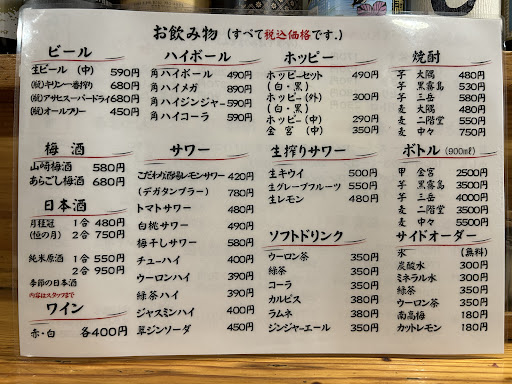 お飲み物 (すべて税込価格です。)
ビール
生ビール (中) 590円
(瓶)キリン一番搾り 680円
(瓶)アサヒスーパードライ 680円
(瓶)オールフリー 450円
梅酒
山崎梅酒 580円
あらごし梅酒 680円
日本酒
月桂冠 1合 480円
(恒の月) 2合 750円
純米原酒 1合 550円
2合 950円
季節の日本酒
内容はスタッフまで
ワイン
赤・白 各400円
ハイボール
角ハイボール 490円
角ハイメガ 890円
角ハイジンジャー 590円
角ハイコーラ 590円
サワー
こだわり酒場レモンサワー 420円
(デカタンブラー) 780円
トマトサワー 480円
白桃サワー 490円
梅干しサワー 580円
チューハイ 400円
ウーロンハイ 390円
緑茶ハイ 390円
ジャスミンハイ 400円
翠ジンソーダ 450円
ホッピー
ホッピーセット 490円
(白・黒)
ホッピー (外) 300円
(白・黒)
ホッピー (中) 290円
金宮 (中) 350円
生搾りサワー
生キウイ 500円
生グレープフルーツ 550円
生レモン 480円
ソフトドリンク
ウーロン茶 350円
緑茶 350円
コーラ 350円
カルピス 380円
ラムネ 380円
ジンジャーエール 350円
焼酎
芋 大隅 480円
芋 黒霧島 530円
芋 三岳 580円
麦 大隅 480円
麦 二階堂 550円
麦 中々 750円
ボトル (900ml)
甲 金宮 2500円
芋 黒霧島 3500円
芋 三岳 4000円
麦 二階堂 3500円
麦 中々 5500円
サイドオーダー
氷 (無料)
炭酸水 300円
ミネラル水 300円
緑茶 350円
ウーロン茶 350円
南高梅 180円
カットレモン 180円